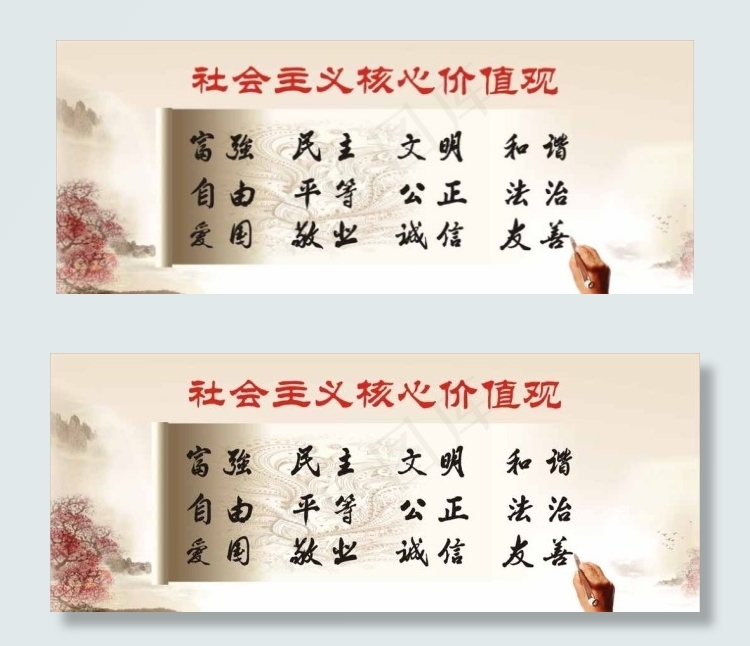 社会主义核心价值观
富强 民主 文明 和谐
自由 平等 公正 法治
爱国 敬业 诚信 友善
社会主义核心价值观
富强 民主 文明 和谐
自由 平等 公正 法治
爱国 敬业 诚信 友善